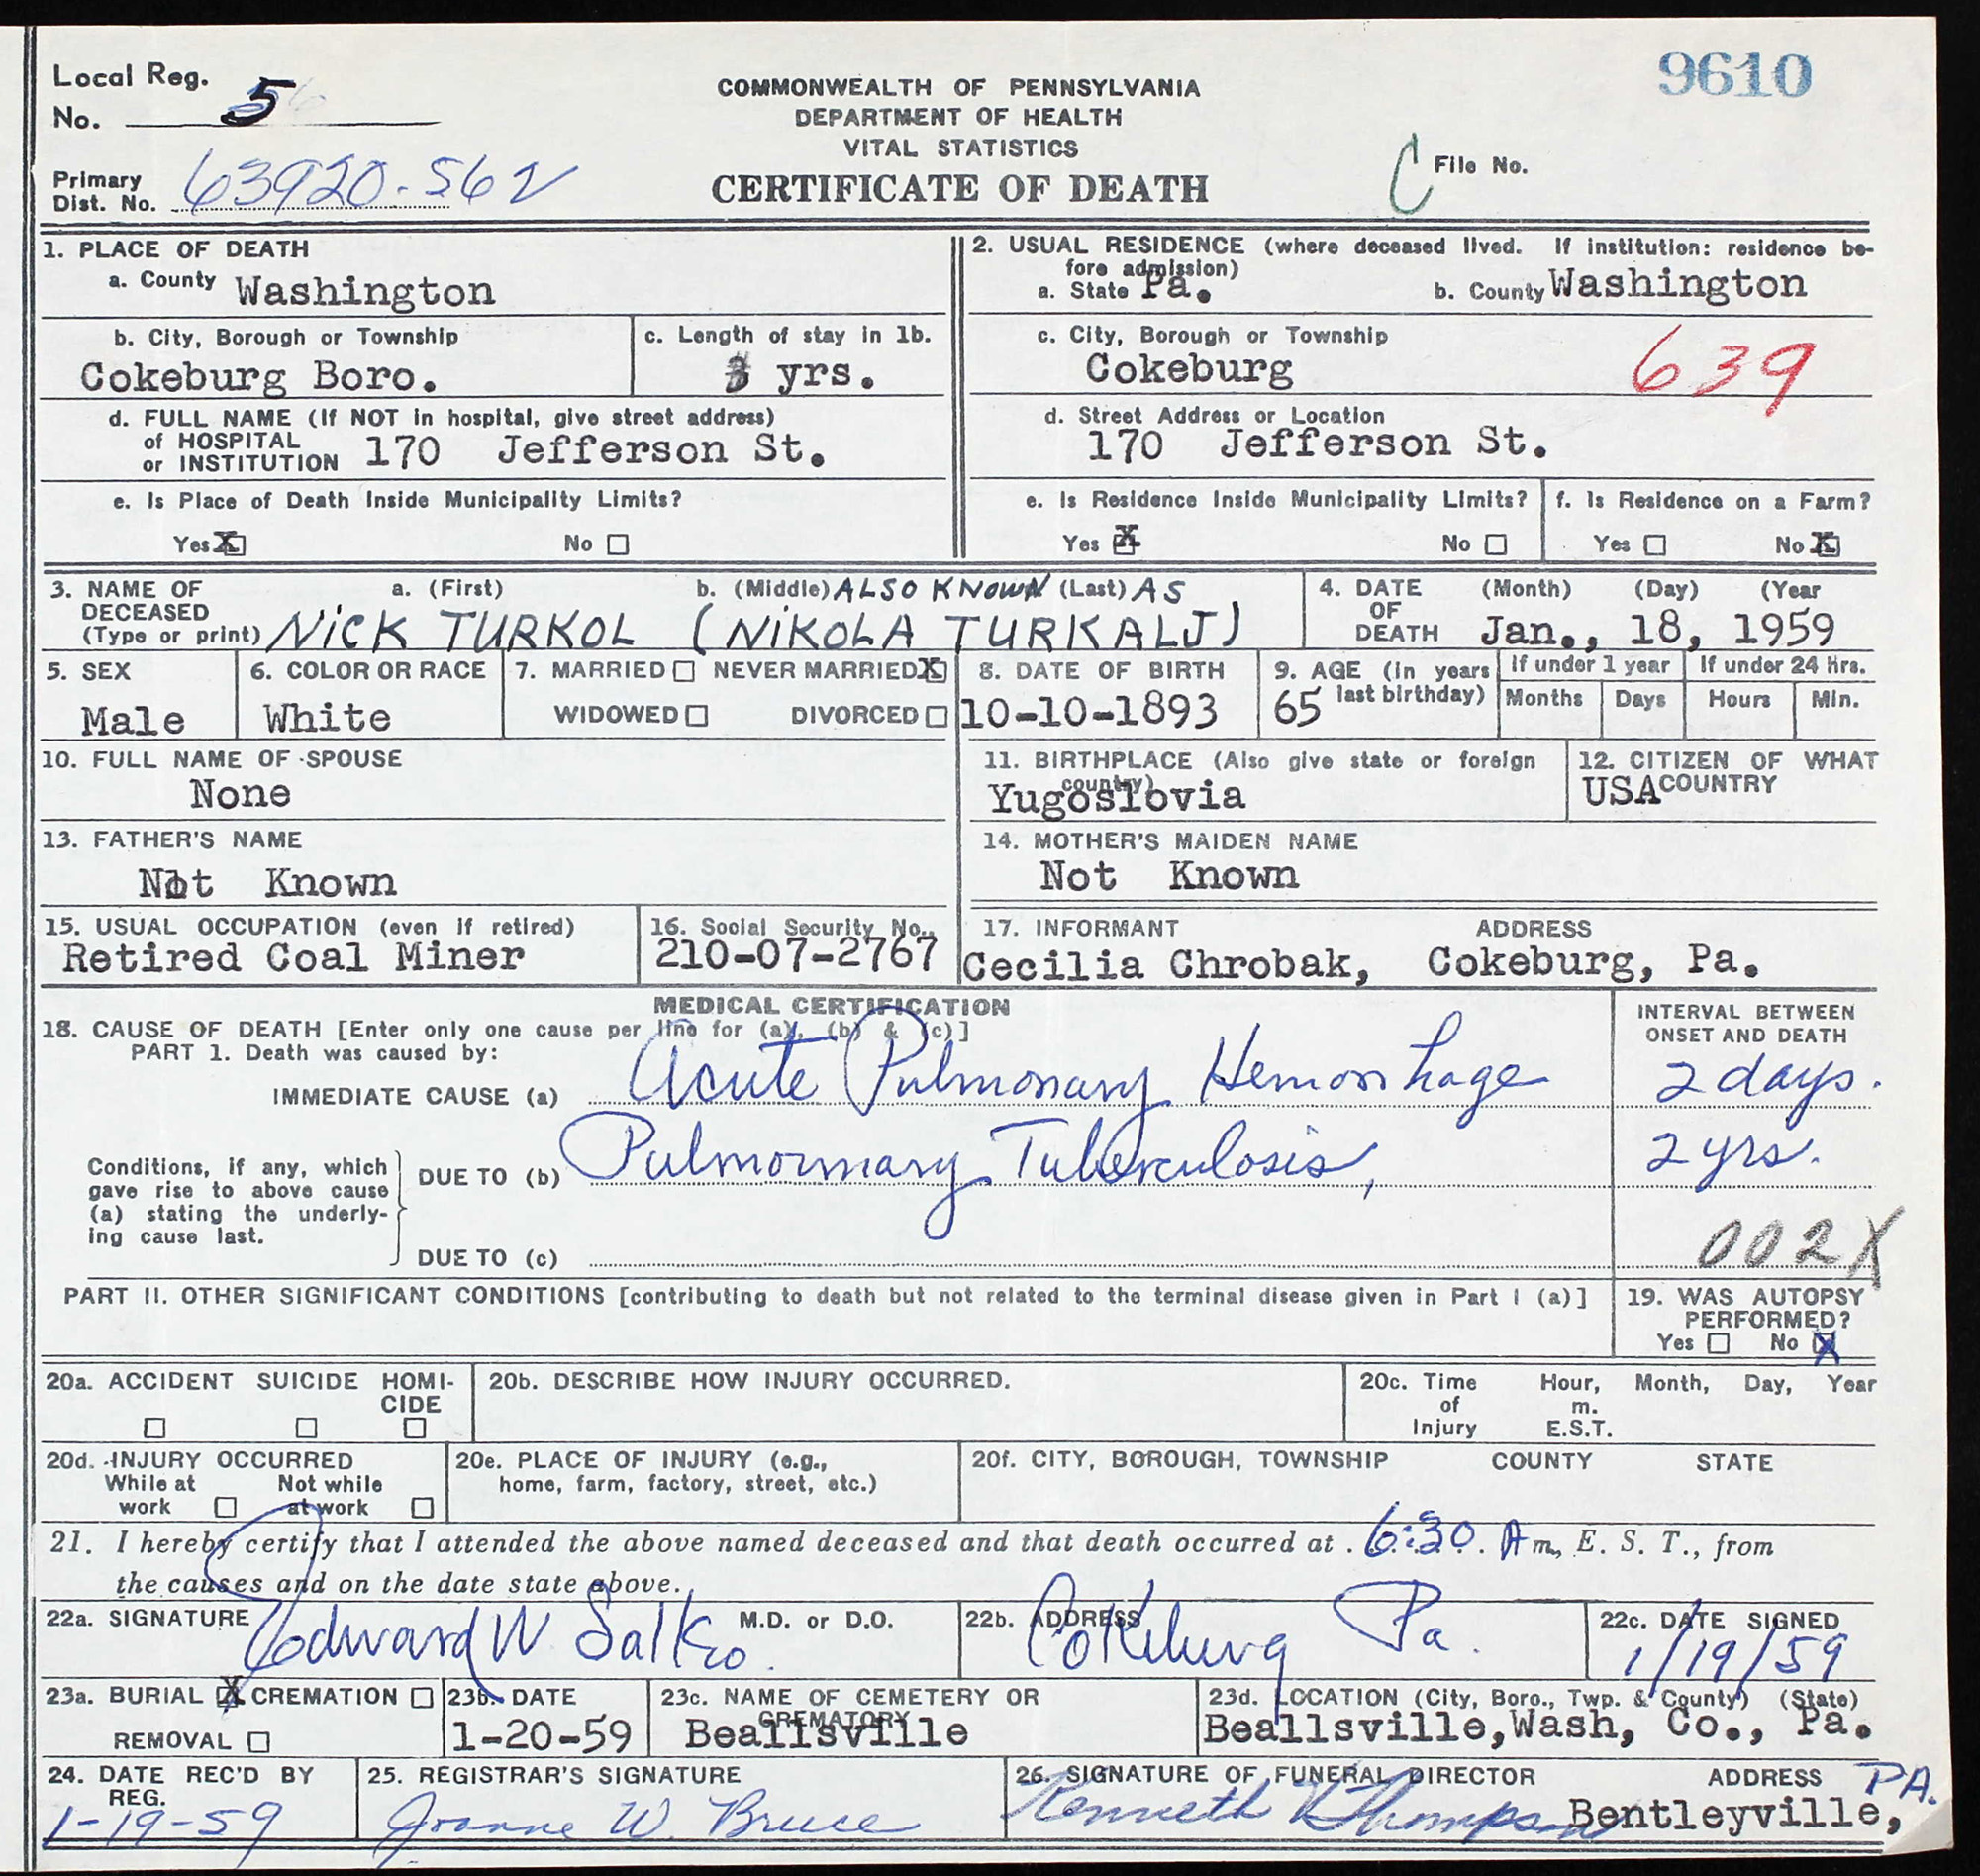 9610
Local Reg.
No. 5
COMMONWEALTH OF PENNSYLVANIA
DEPARTMENT OF HEALTH
VITAL STATISTICS
CERTIFICATE OF DEATH
C File No.
Primary
Dist. No. 63920-562
1. PLACE OF DEATH
a. County Washington
b. City, Borough or Township
Cokeburg Boro.
c. Length of stay in 1b.
3 yrs.
d. FULL NAME (If NOT in hospital, give street address)
of HOSPITAL
or INSTITUTION 170 Jefferson St.
e. Is Place of Death Inside Municipality Limits?
Yes X No
2. USUAL RESIDENCE (where deceased lived. If institution: residence be-
fore admission)
a. State Pa. b. County Washington
c. City, Borough or Township
Cokeburg 639
d. Street Address or Location
170 Jefferson St.
e. Is Residence Inside Municipality Limits?
Yes X No
f. Is Residence on a Farm?
Yes No X
3. NAME OF a. (First) b. (Middle) ALSO KNOWN (Last) AS
DECEASED
(Type or print) NICK TURKOL (NIKOLA TURKALJ)
4. DATE (Month) (Day) (Year
OF
DEATH Jan., 18, 1959
5. SEX
Male
6. COLOR OR RACE
White
7. MARRIED NEVER MARRIED X
WIDOWED DIVORCED
8. DATE OF BIRTH
10-10-1893
9. AGE (in years
last birthday)
65
If under 1 year
Months Days
If under 24 Hrs.
Hours Min.
10. FULL NAME OF SPOUSE
None
11. BIRTHPLACE (Also give state or foreign
country)
Yugoslovia
12. CITIZEN OF WHAT
COUNTRY
USA
13. FATHER'S NAME
Not Known
14. MOTHER'S MAIDEN NAME
Not Known
15. USUAL OCCUPATION (even if retired)
Retired Coal Miner
16. Social Security No.
210-07-2767
17. INFORMANT ADDRESS
Cecilia Chrobak, Cokeburg, Pa.
MEDICAL CERTIFICATION
18. CAUSE OF DEATH [Enter only one cause per line for (a), (b) & (c)]
PART 1. Death was caused by:
IMMEDIATE CAUSE (a) Acute Pulmonary Hemorrhage
INTERVAL BETWEEN
ONSET AND DEATH
2 days.
Conditions, if any, which
gave rise to above cause
(a) stating the underly-
ing cause last.
DUE TO (b) Pulmormary Tuberculosis,
2 yrs.
DUE TO (c)
002X
PART II. OTHER SIGNIFICANT CONDITIONS [contributing to death but not related to the terminal disease given in Part I (a)]
19. WAS AUTOPSY
PERFORMED?
Yes No X
20a. ACCIDENT SUICIDE HOMI-
CIDE
20b. DESCRIBE HOW INJURY OCCURRED.
20c. Time Hour, Month, Day, Year
of m.
Injury E.S.T.
20d. INJURY OCCURRED
While at Not while
work at work
20e. PLACE OF INJURY (e.g.,
home, farm, factory, street, etc.)
20f. CITY, BOROUGH, TOWNSHIP COUNTY STATE
21. I hereby certify that I attended the above named deceased and that death occurred at 6:30 A m, E. S. T., from
the causes and on the date state above.
22a. SIGNATURE Edward W. Salko M.D. or D.O.
22b. ADDRESS
Cokeburg Pa.
22c. DATE SIGNED
1/19/59
23a. BURIAL X CREMATION
REMOVAL
23b. DATE
1-20-59
23c. NAME OF CEMETERY OR
CREMATORY
Beallsville
23d. LOCATION (City, Boro., Twp. & County) (State)
Beallsville,Wash, Co., Pa.
24. DATE REC'D BY
REG.
1-19-59
25. REGISTRAR'S SIGNATURE
Joanne W. Bruce
26. SIGNATURE OF FUNERAL DIRECTOR ADDRESS PA.
Kenneth Thompson Bentleyville,